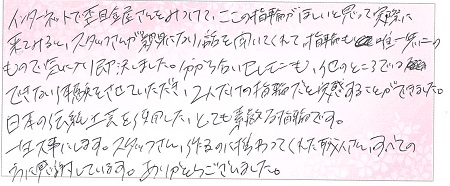 インターネットで杢目金屋さんをみつけて、ここの指輪がほしいと思って実際に
来てみると、スタッフさんが親身になり話を聞いてくれて、指輪も唯一無二の
もので気に入り即決しました。分からないセレモニーも、他のところでは
できない体験をさせていただき、2人だけの指輪だと実感することができました。
日本の伝統工芸を使用したとても素敵な指輪です。
一生大事にします。スタッフさん、作るのに携わってくれた職人さん、すべての
方に感謝しています。ありがとうございました。